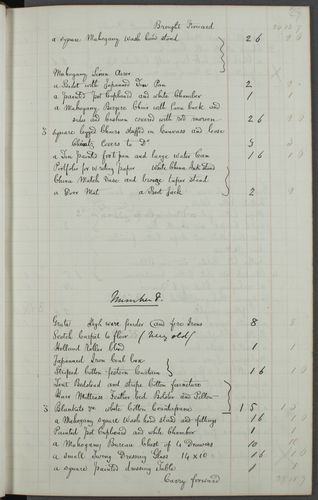 Brought Forward
a square Mahogany Wash hand stand 2 6
Mahogany Linen Airer
a Bidet with Japanned Pan 2
a painted Pot Cupboard and white Chamber 1
a Mahogany Bergere Chair with Cane back and
sides and cushions covered with red morocco 2 6
3 square legged Chairs stuffed in Canvass and loose
Chintz Covers to Do 3
a Tin painted foot pan and large water Can 1 6
Portfolio for writing paper White China Ink Stand
China Match Vase and bronze taper stand
a Door Mat a Boot Jack 2
Number 8.
Grate High wire fender and fire Irons 8
Scotch Carpet to floor (Very old)
Holland Roller blind 1
Japanned Iron Coal box
Striped Cotton festoon Curtain 1 6
Tent Bedstead and stripe Cotton furniture
Hair Mattress Feather bed Bolster and Pillow
3 Blankets white Cotton Counterpane 1 5
a Mahogany square Wash hand stand and fittings 1 6
Painted Pot Cupboard and white Chamber 1
a Mahogany Bureau Chest of 4 Drawers 10
a small Swing Dressing Glass 14 x 10 1 6
a square Painted dressing Table 1
Carry forward